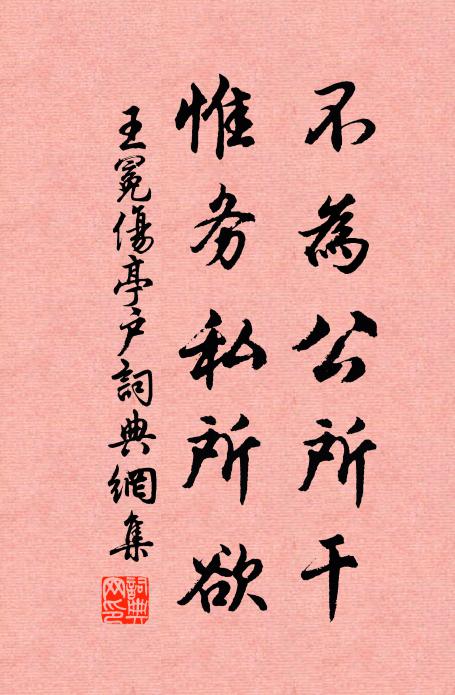 不為公所干
惟务私所欲
王冕傷亭户詞典網集
詞典網印